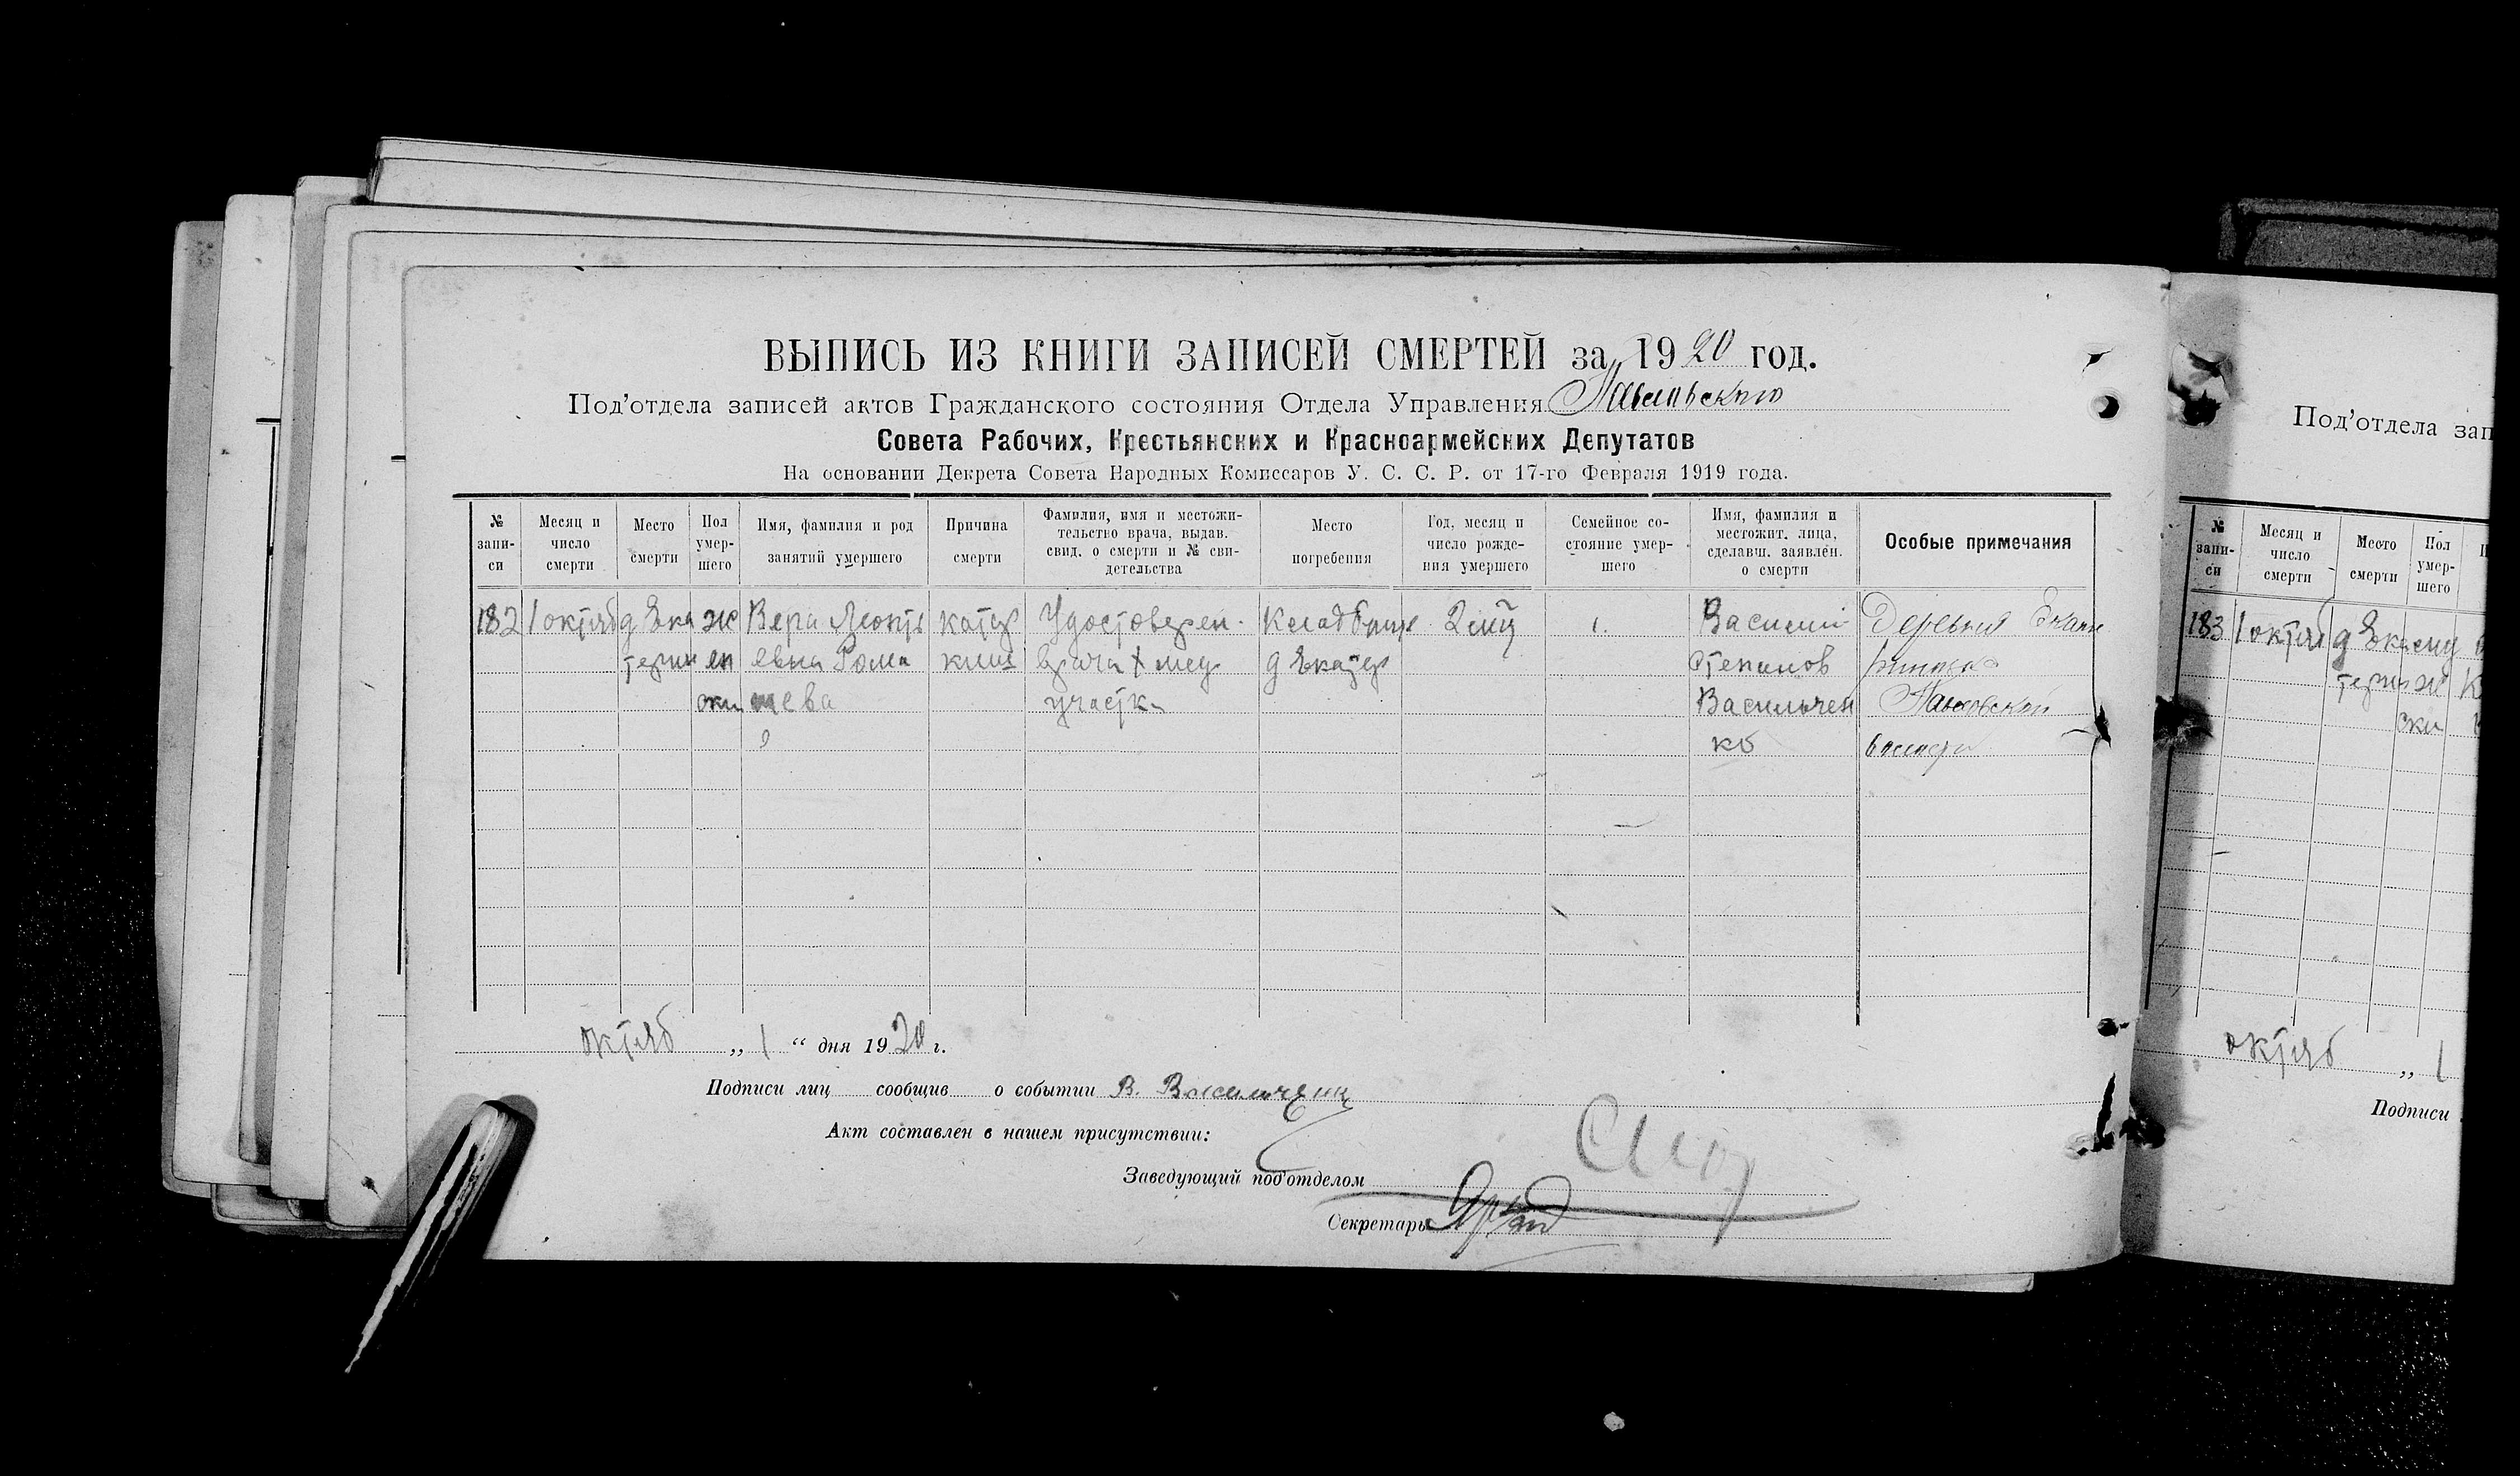 ВЫПИСЬ ИЗ КНИГИ ЗАПИСЕЙ СМЕРТЕЙ за 1920 год.
Под'отдела записей актов Гражданского состояния Отдела Управления
Совета Рабочих, Крестьянских и Красноармейских Депутатов
На основании Декрета Совета Народных Комиссаров У. С. С. Р. от 17-го Февраля 1919 года.
№ запи-си
Месяц и число смерти
Место смерти
Пол умер-шего
Имя, фамилия и род занятий умершего
Причина смерти
Фамилия, имя и местожи-тельство врача, выдав. свид. о смерти и № сви-детельства
Место погребения
Год, месяц и число рожде-ния умершего
Семейное со-стояние умер-шего
Имя, фамилия и местожит. лица, сделавш. заявлен. о смерти
Особые примечания
182 1 октяб д Ека ж Вера Леонть катар Удостоверен. Кладбище 2 Василий Деревня
терин ен евна Рома киш врача мед д Екатер Степанов
ски щева участка Васильчен
ко волости
октяб „ 1 “ дня 1920 г.
Подписи лиц сообщив о событии В. Васильченк
Акт составлен в нашем присутствии:
Заведующий под'отделом
Секретарь
Под'отдела зап
№ запи-си
Месяц и число смерти
Место смерти
Пол умер-шего
183 1 октяб д Ека
терин ж
ски
октяб „ 1
Подписи